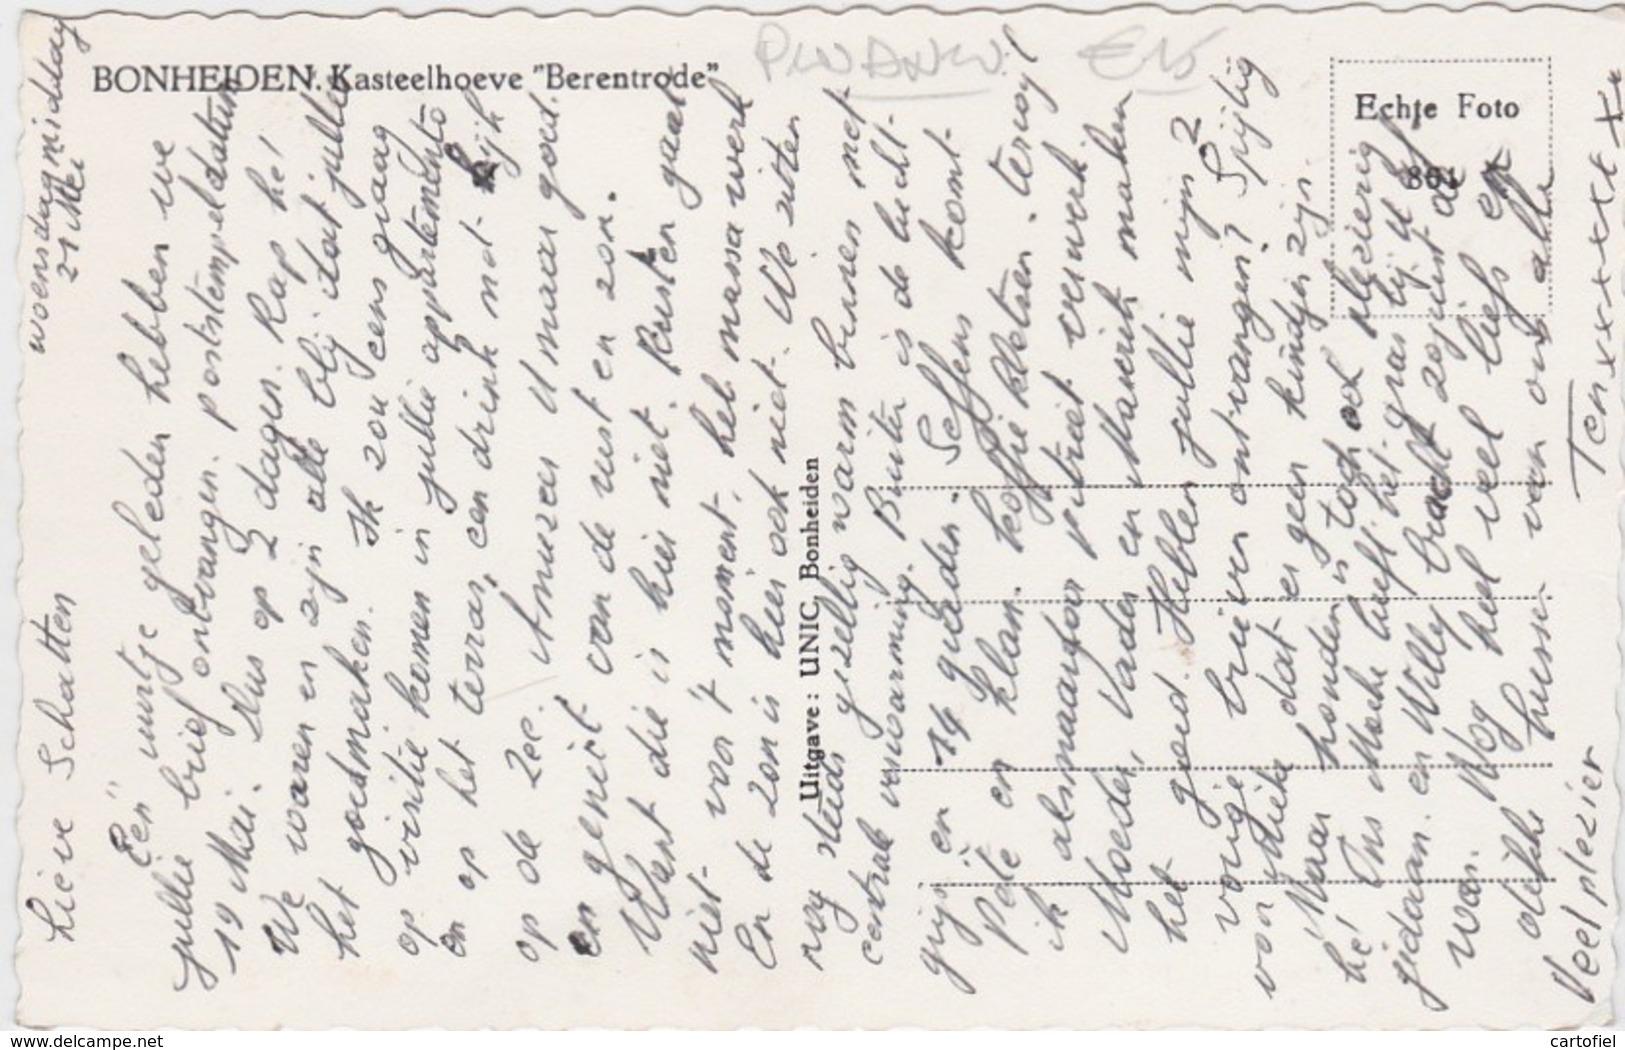 BONHEIDEN. Kasteelhoeve "Berentrode"
Echte Foto
861
Uitgave: UNIC, Bonheiden
€15
woensdagmiddag
21 Mei
Lieve Schatten
Een uurtje geleden hebben we
jullie brief ontvangen. poststempeldatum
19 Mai. Dus op 2 dagen. Rap hé!
We waren en zijn alle blij dat jullie
het goedmaken. Ik zou eens graag
op visitie komen in jullie appartemento
en op het terras, een drink met kijk
op de zee. Amuzeer U maar goed.
en geniet van de rust en zon.
Want die is hier niet. Rusten gaat
niet voor 't moment, het massa werk
En de zon is hier ook niet. We zitten
nog steeds gezellig warm binnen met
centrale verwarming. Buiten is de lucht
grijs en 14 graden. Seffens komt
Pole en klan. koffie kletsen. terwijl
ik alsmaardoor patriet verwerk
Moeder, Vader en Maurits maken
het goed. Hebben jullie mijn 2
vorige brieven ontvangen? Spijtig
voor Mieke dat er geen kindjes zijn.
Maar honden is toch ook plezierig
hé! Ons Moeke heeft het gras bij U af
gedaan. en Willy bracht zojuist de
was. Nog heel veel liefs en
dikke kussen van ons alle
Veel plezier
Ten xxxxxxx